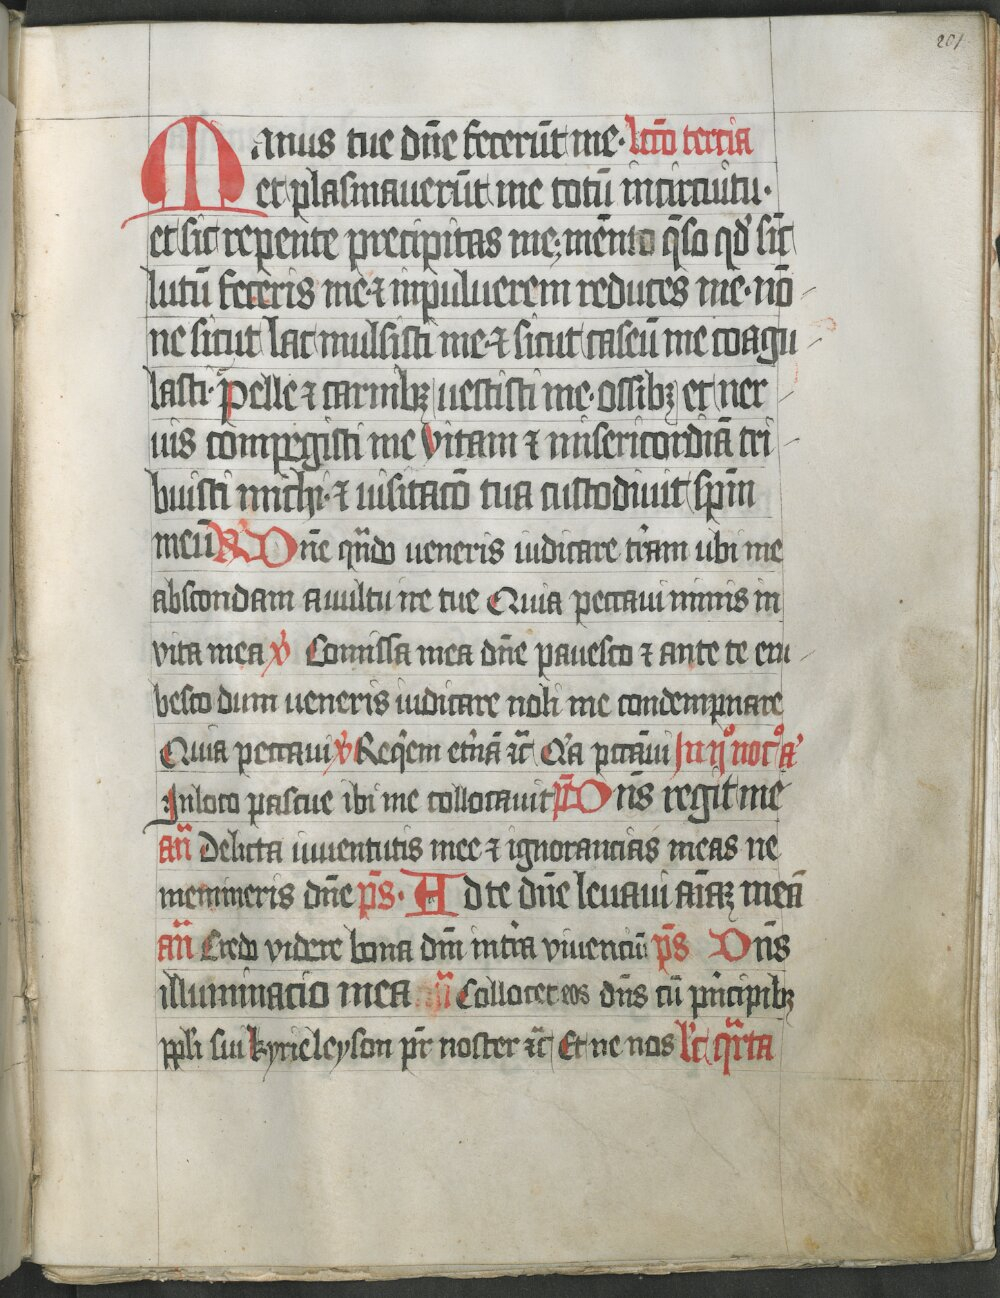 201
Manus tue dn̄e fecerūt me· lctō tercia
et plasmauerūt me totū incircuitu·
et sic repente precipitas me; mēnto q̄so qđ sic̄
lutū feceris me ⁊ inpuluerem reduces me· nō
ne sicut lac mulsisti me ⁊ sicut caseū me coagu
lasti· pelle ⁊ carnibꝫ uestisti me· ossibꝫ et ner
uis compegisti me vitam ⁊ misericordiā tri
buisti michi· ⁊ uisitacō tua custodiuit sp̄m
meū ℟ Dn̄e qn̄do ueneris iudicare tr̄am ubi me
abscondam auultu ire tue Quia peccaui nimis in
vita mea ℣ Comissa mea dn̄e pauesco ⁊ ante te eru
besco dum ueneris iudicare noli me condempnare
Quia peccaui ℣ Req̄em et̄nā ⁊c̄ Qr̄a pccāui In ijº nocº aͬ
Inloco pascue ibi me collocauit p̄s Dn̄s regit me
an̄ Delicta iuuentutis mee ⁊ ignorancias meas ne
memineris dn̄e p̄s· Ad te dn̄e leuaui aīaꝫ meā
an̄ Credo videre bona dn̄i in tr̄a viuenciū p̄s Dn̄s
illuminacio mea an̄ Collocet eos dn̄s cū pn̄cipibꝫ
ppl̄i sui kyrieleyson pr̄ noster ⁊c̄ Et ne nos lc̄ qr̄ta